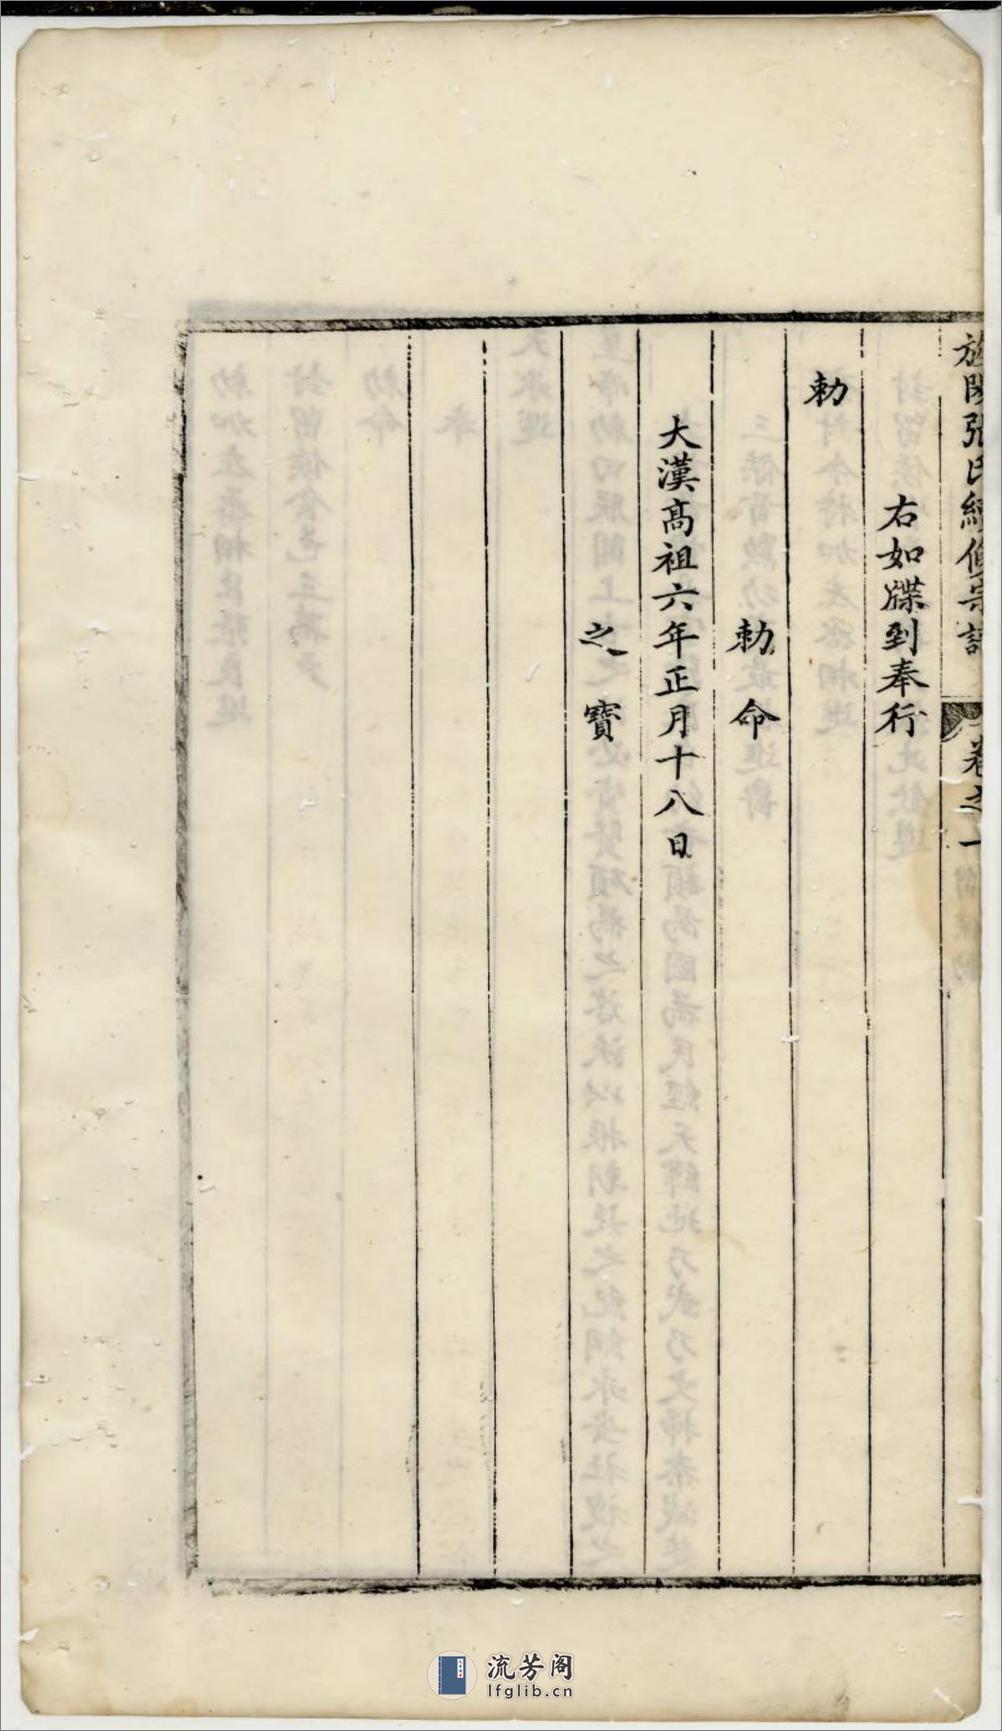 旌陽張氏統修宗譜 卷之一
右如牒到奉行
勅
勅命
大漢高祖六年正月十八日
之寶
流芳阁
lfglib.cn